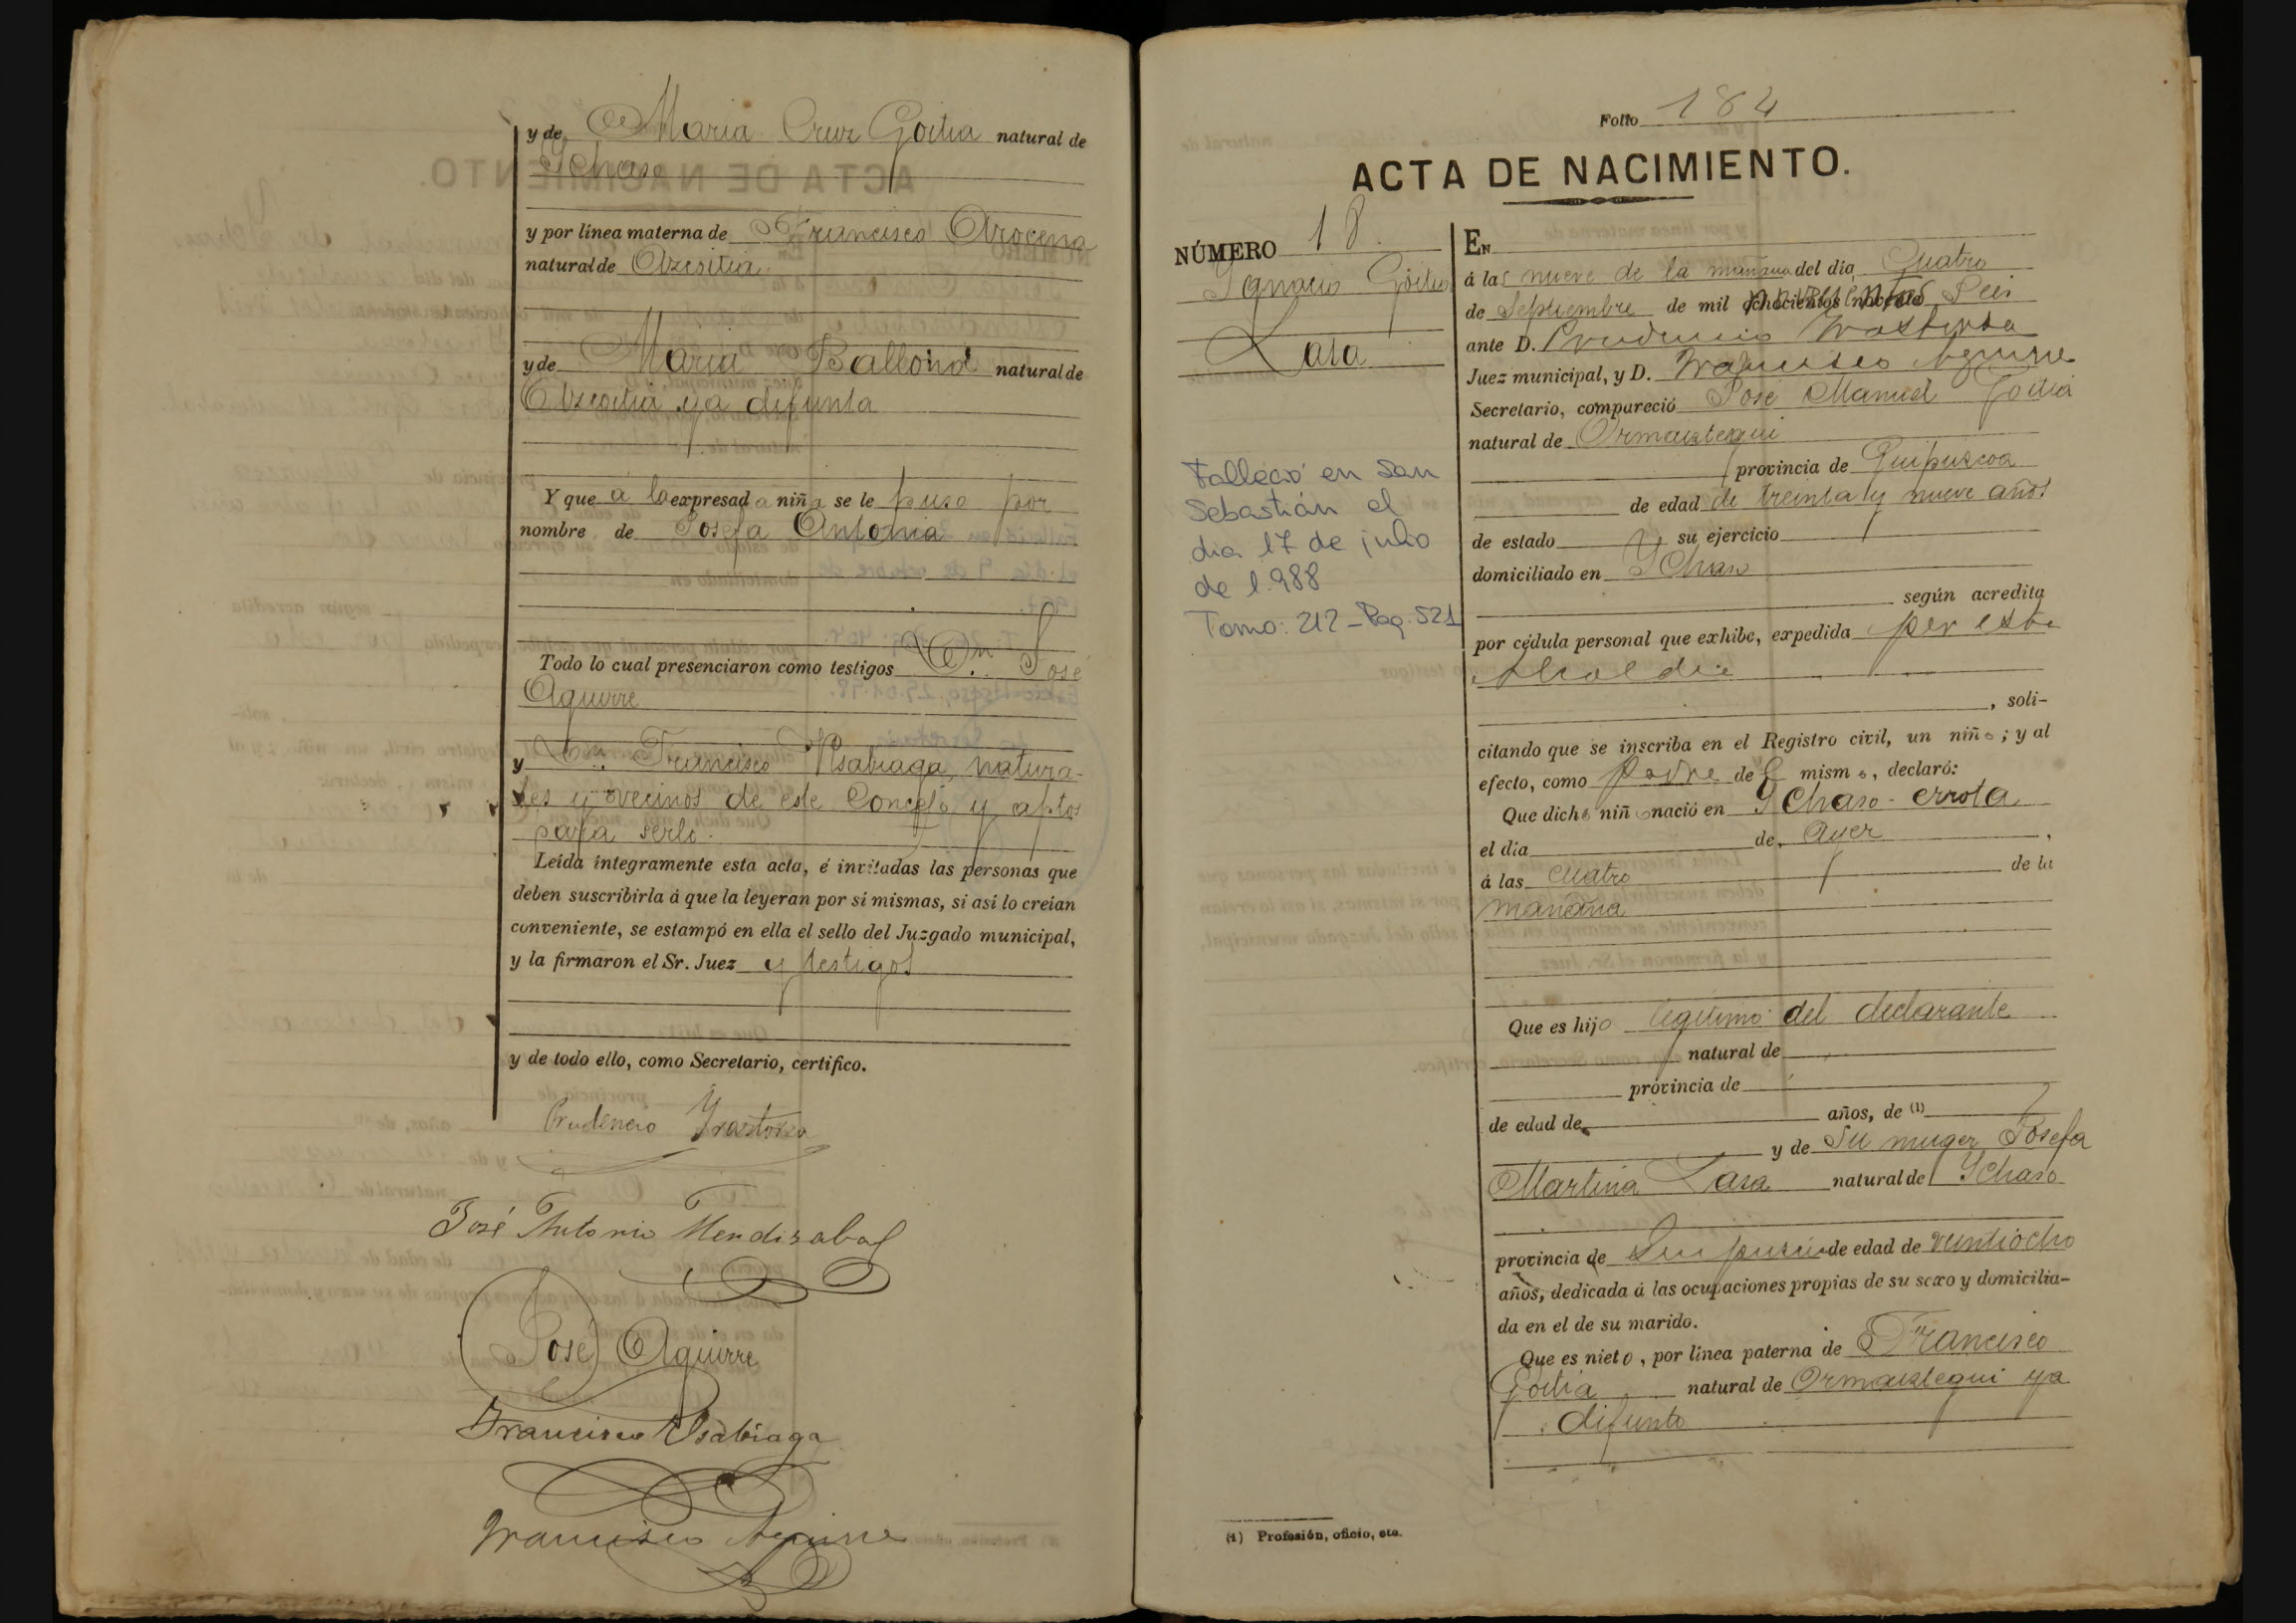 y de Maria Cruz Goitia natural de
Ichaso
y por línea materna de Francisco Arocena
natural de Azcoitia
y de Maria Ballona natural de
Azcoitia ya difunta
Y que a la expresada niña se le puso por
nombre de Josefa Antonia
Todo lo cual presenciaron como testigos Dn. José
Aguirre
y Dn. Francisco Ysabiaga, natura-
les y vecinos de este Concejo y aptos
para serlo.
Leída íntegramente esta acta, é invitadas las personas que
deben suscribirla á que la leyeran por sí mismas, si así lo creían
conveniente, se estampó en ella el sello del Juzgado municipal,
y la firmaron el Sr. Juez y testigos
y de todo ello, como Secretario, certifico.
Prudencio Yrastorza
José Antonio Mendizabal
José Aguirre
Francisco Ysabiaga
Francisco Aguirre
Folio 184
ACTA DE NACIMIENTO.
NÚMERO 18.
Ignacio Goitia
Lasa
Falleció en San
Sebastián el
día 17 de julio
de 1.988
Tomo: 212 - Pag. 521
EN
á las nueve de la mañana del día Cuatro
de Septiembre de mil novecientos Seis
ante D. Prudencio Yrastorza
Juez municipal, y D. Francisco Aguirre
Secretario, compareció José Manuel Goitia
natural de Ormaiztegui
provincia de Guipuzcoa
de edad de treinta y nueve años
de estado su ejercicio
domiciliado en Ychaso
según acredita
por cédula personal que exhibe, expedida por esta
Alcaldia
, soli-
citando que se inscriba en el Registro civil, un niño; y al
efecto, como Padre del mismo, declaró:
Que dicho niño nació en Ychaso-errota
el día de Ayer ,
á las cuatro de la
mañana
Que es hijo legitimo del declarante
natural de
provincia de
de edad de años, de (1)
y de Su muger Josefa
Martina Lasa natural de Ychaso
provincia de Guipuzcoa de edad de veintiocho
años, dedicada á las ocupaciones propias de su sexo y domicilia-
da en el de su marido.
Que es nieto, por línea paterna de Francisco
Goitia natural de Ormaiztegui ya
difunto
(1) Profesión, oficio, etc.